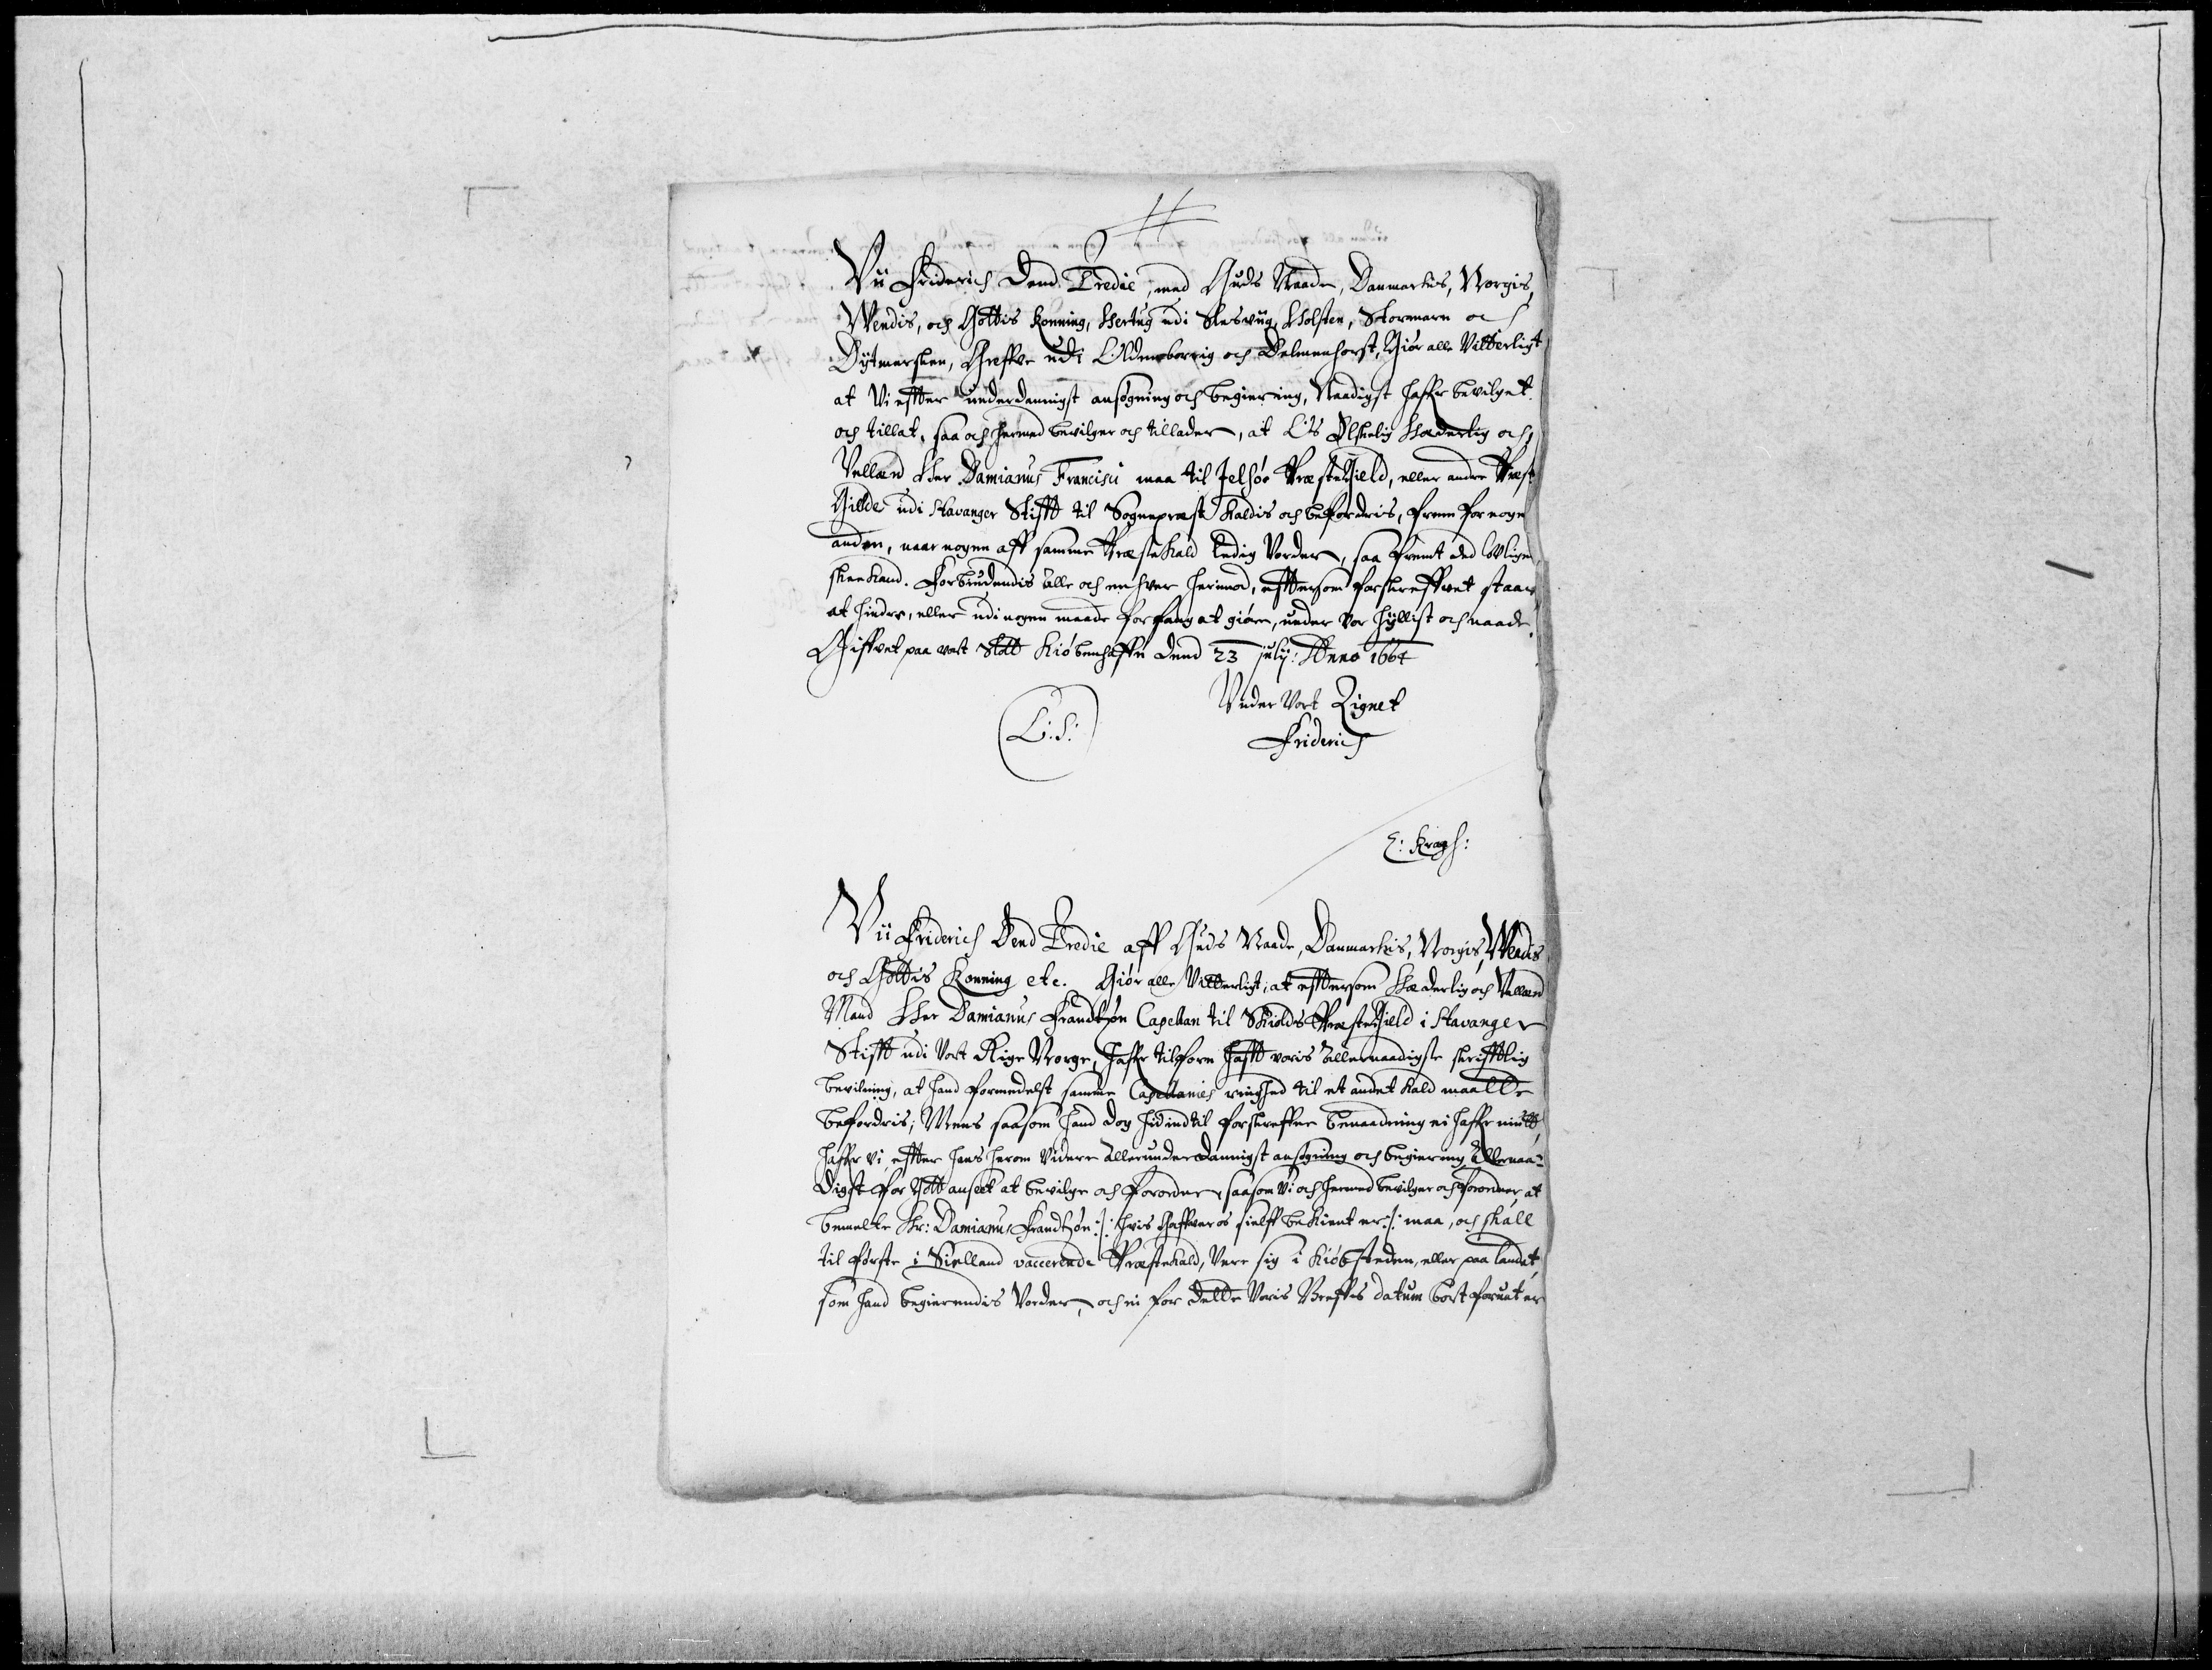 Vii Friderich Dend Tredie, med Guds Naade, Danmarkis, Norgis,
Wendis, och Gottis Konning, Hertug udi Slesviig, Holsten, Stormarn och
Dytmersken, Greffve udi Oldenborrig och Delmenhorst, Giør alle Vitterligt
at Vi effter underdannigst ansøgning och begiering, Naadigst haffr bevilget
och tillat, saa och hermed bevilger och tillader, at Os Elskelig Hæderlig och
Vellærd Her Damianus Francisci maa til Jelsøe PræsteGield, eller andre Præste
Gielde udi Stavanger Stifft til Sognepræst kaldis och befordris, frem for nogen
anden, naar nogen aff samme Præstekald Ledig Vorder, saa fremt det
skee kand. Forbiudendis alle och en hver herimod, efftersom forskreffvet staar
at hindre, eller udi nogen maade forfang at giøre, under vor hyllist och naade.
Giffvet paa vort Slott Kiøbenhaffn Dend 23 julij: Anno 1664
Under Vort Zignet
L:S:
Friderich
E: Kragh:
Vii Friderich Dend Tredie aff Guds Naade, Danmarkis, Norgis, Wendis
och Gottis Konning etc. Giør alle Vitterligt, at efftersom Hæderlig och Vellærd
Mand Her Damianus Frandtzøn Capellan til Skiolds PræsteGield i Stavanger
Stifft udi Vort Rige Norge, haffr tilforn hafft voris allernaadigste skrifftlig
bevilning, at hand formedelst samme Capellanies ringhed til et andet kald maatte
befordris; Mens saasom hand dog hid indtil forskreffne benaadning ei haffr nutt,
haffr Vi effter hans herom Videre allerunderdannigst ansøgning och begiering Allernaa-
digst for gott anseet at bevilge och forordne, saasom Vi och hermed bevilger och forordner, at
bemelte Hr: Damianus Frandtzøn :/: hvis os sielff bekient er :/: maa, och skall
til første i Sielland vaccerende Præstekald, Vere sig i Kiøbsteden, eller paa landet,
som hand begierendis Vorder, och ei før dette Voris Breffvis datum bort er